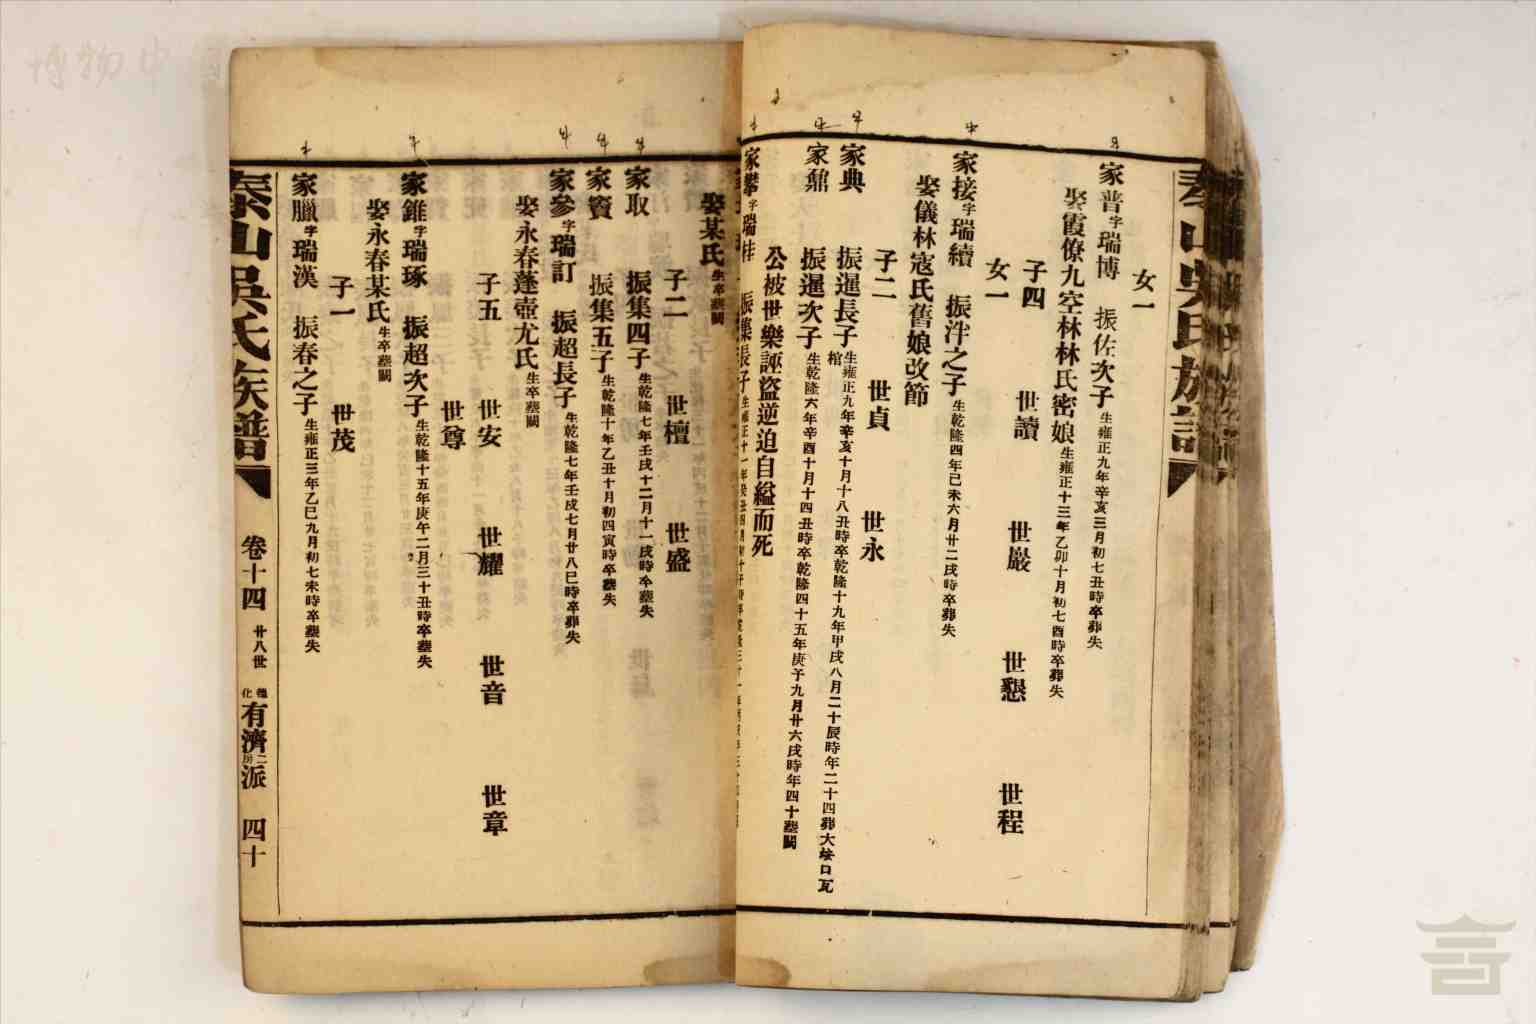 博物中
女一
家普字瑞博 振佐次子生雍正九年辛亥三月初七丑時卒葬失
娶霞僚九空林林氏密娘生雍正十三年乙卯十月初七酉時卒葬失
子四 世讀 世嚴 世懇 世程
女一
家接字瑞續 振泮之子生乾隆四年己未六月廿二戌時卒葬失
娶儀林寇氏舊娘改節
子二 世貞 世永
家典 振暹長子生雍正九年辛亥十月十八丑時卒乾隆十九年甲戌八月二十辰時年二十四葬大坽口瓦棺
家鼐 振暹次子生乾隆六年辛酉十月十四丑時卒乾隆四十五年庚子九月廿六戌時年四十墓闕
公被世樂誣盜逆迫自縊而死
家攀字瑞桂 振集長子
娶某氏生卒墓闕
子二 世檀 世盛
家取 振集四子生乾隆七年壬戌十二月十一戌時卒墓失
家竇 振集五子生乾隆十年乙丑十月初四寅時卒墓失
家參字瑞訂 振超長子生乾隆七年壬戌七月廿八巳時卒葬失
娶永春蓬壺尤氏生卒墓闕
子五 世安 世耀 世音 世章
世尊
家錐字瑞琢 振超次子生乾隆十五年庚午二月三十丑時卒墓失
娶永春某氏生卒墓闕
子一 世茂
家臘字瑞漢 振春之子生雍正三年乙巳九月初七未時卒墓失
秦山吳氏族譜 卷十四 廿八世 德化有濟二房派 四十